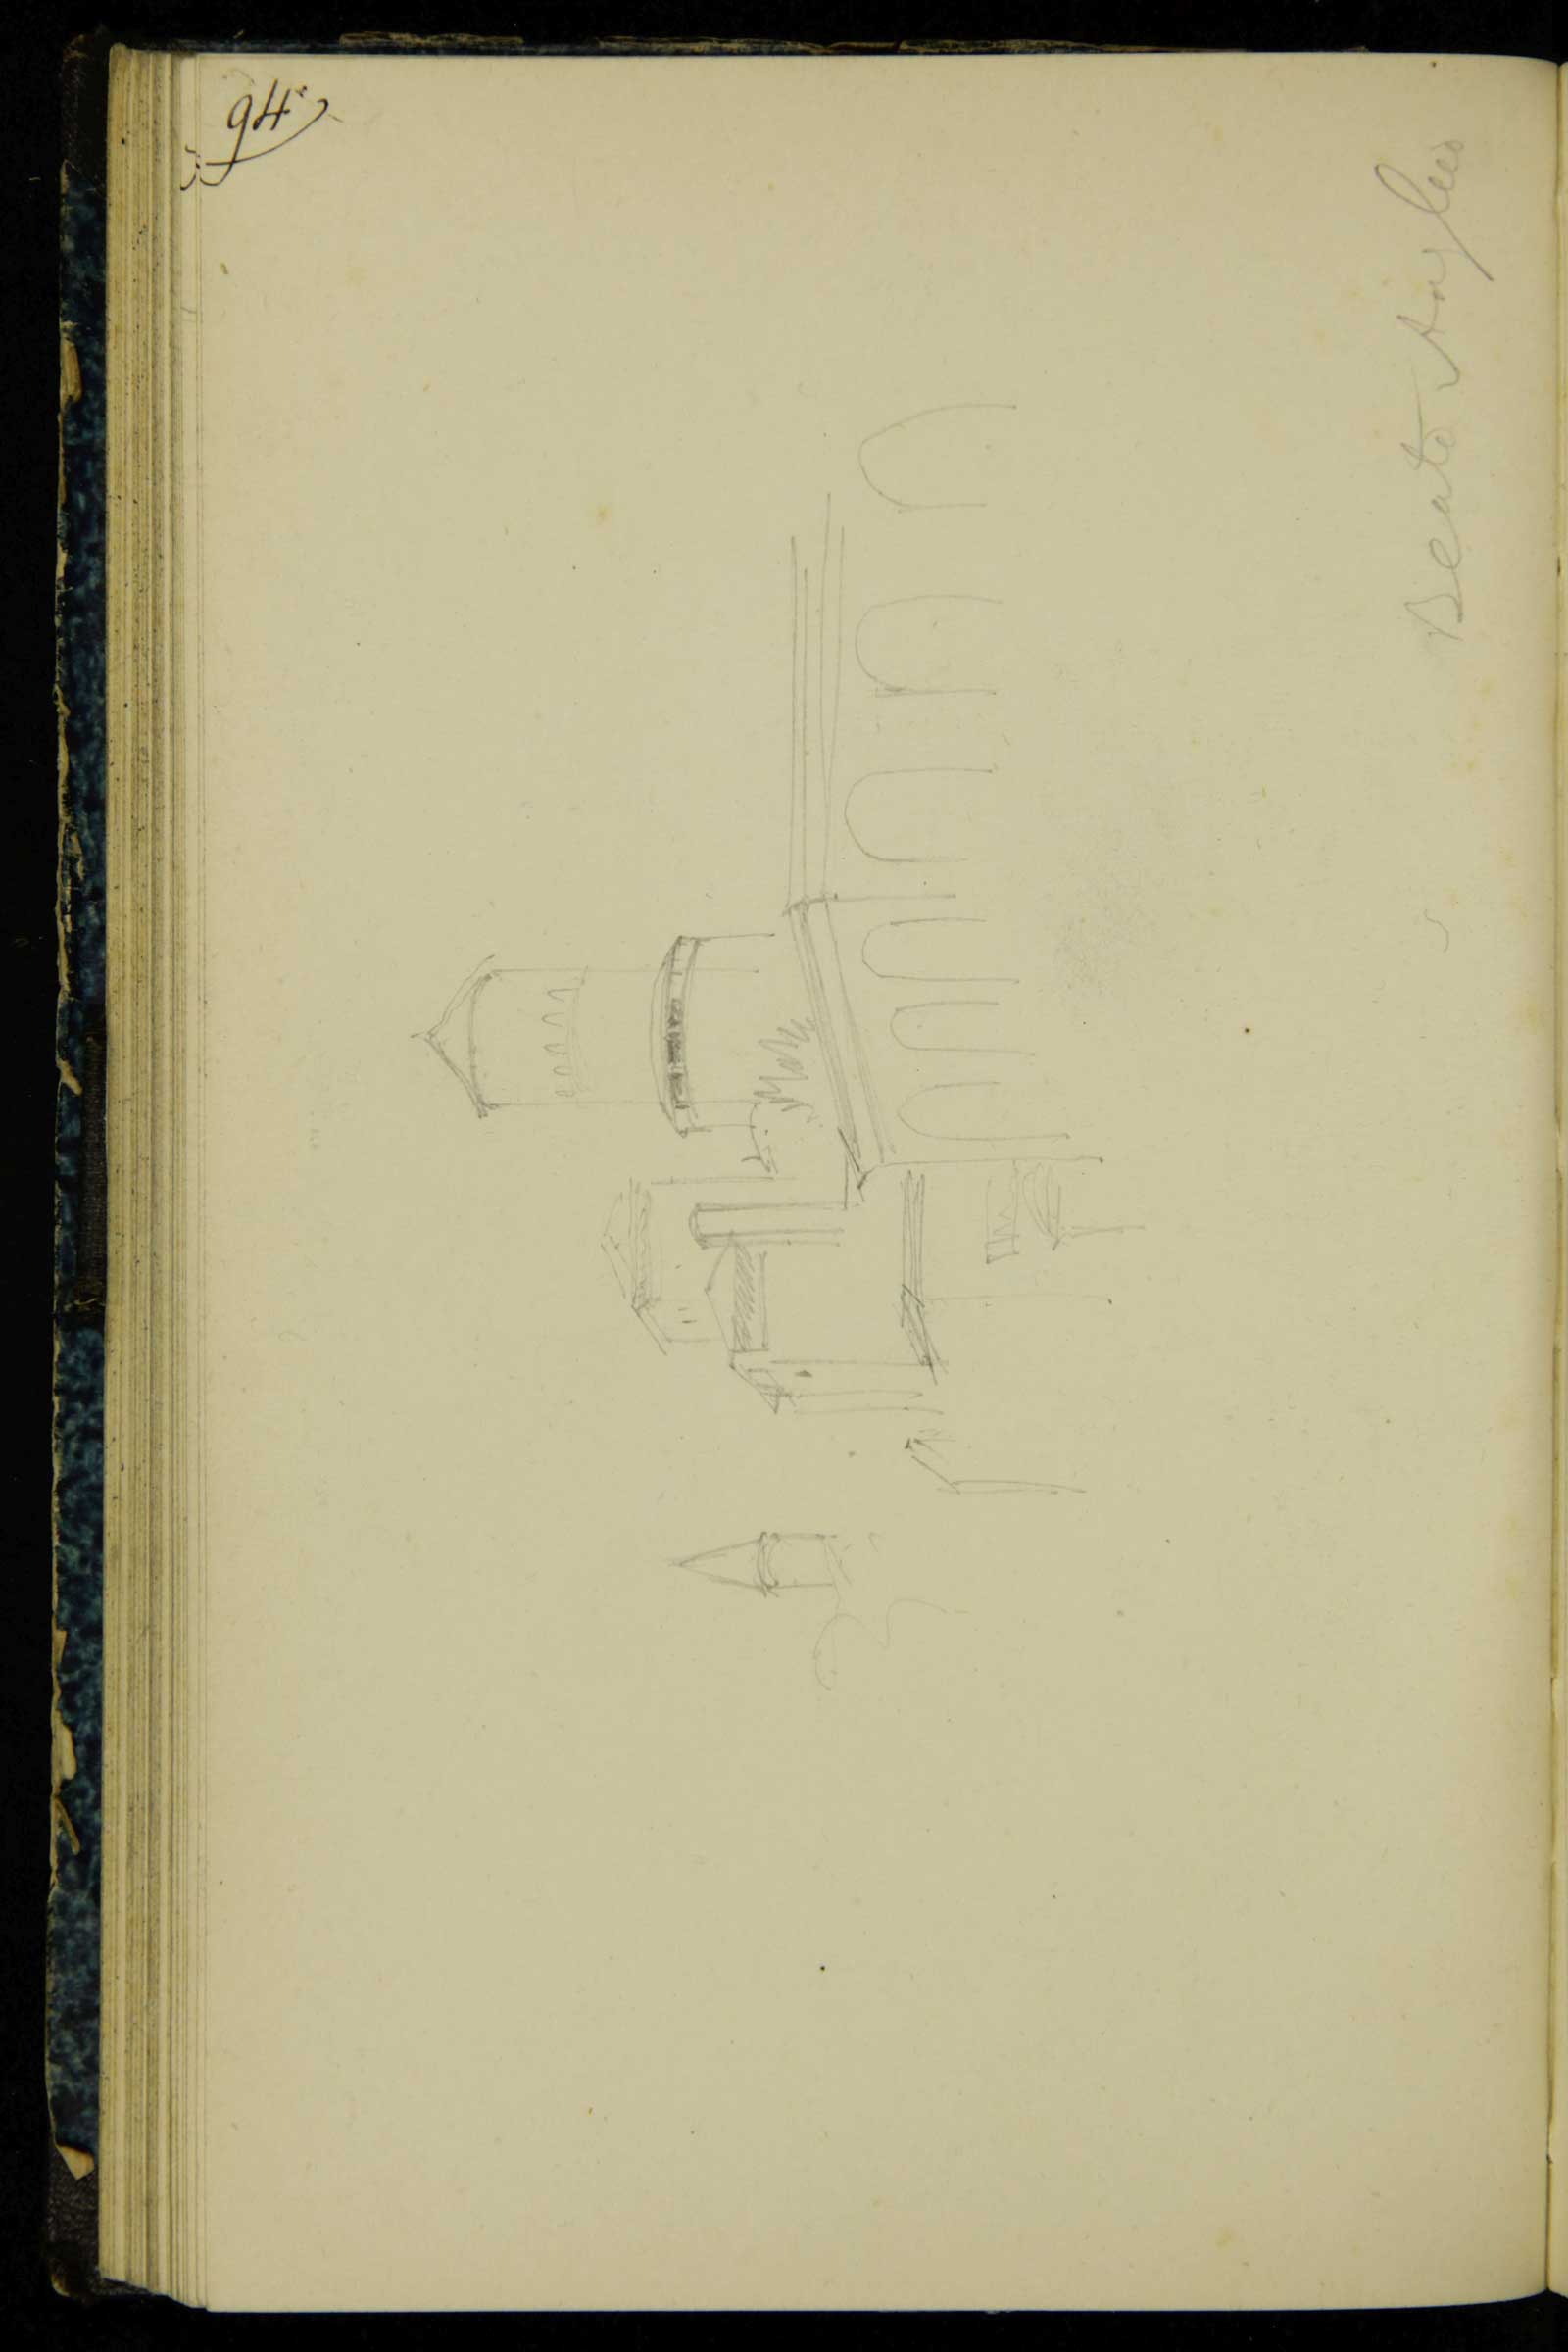 94
Beato Angelico